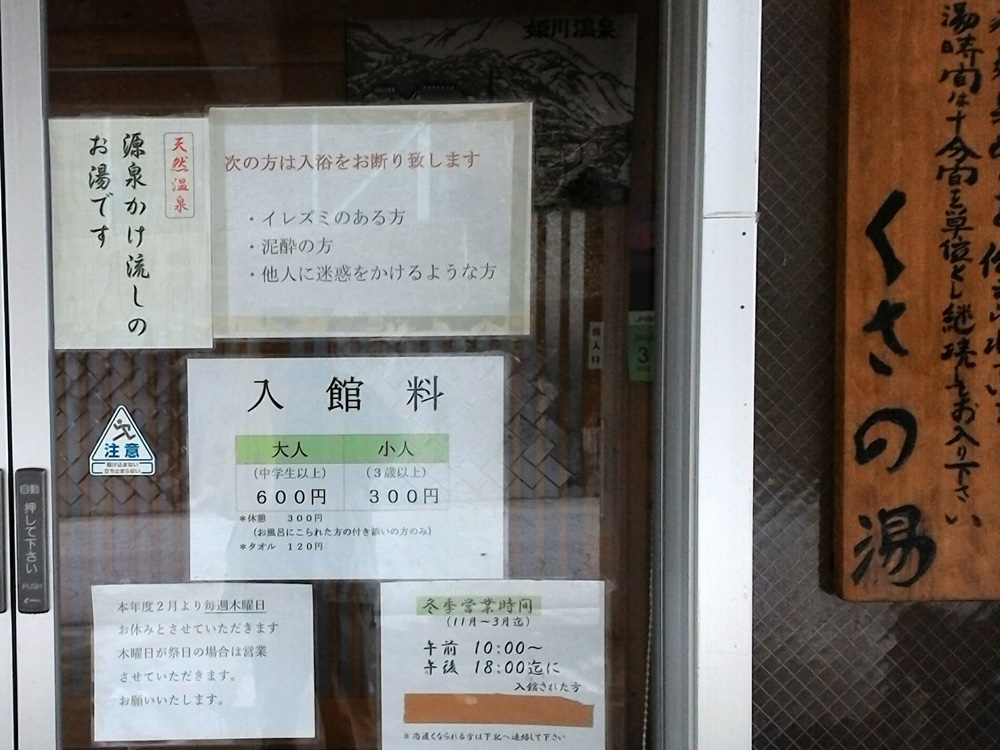 姫川温泉
天然温泉
源泉かけ流しの
お湯です
次の方は入浴をお断り致します
・イレズミのある方
・泥酔の方
・他人に迷惑をかけるような方
入館料
大人 小人
(中学生以上) (3歳以上)
600円 300円
*休憩 300円
(お風呂にこられた方の付き添いの方のみ)
*タオル 120円
注意
駆け込まない
立ち止まらない
自動
押して下さい
PUSH
本年度2月より毎週木曜日
お休みとさせていただきます
木曜日が祭日の場合は営業
させていただきます。
お願いいたします。
冬季営業時間
(11月~3月迄)
午前 10:00~
午後 18:00迄に
入館された方
*尚遅くなられる方は下記へ連絡して下さい
湯時間は十分間を単位とし継続をお入り下さい
くさの湯